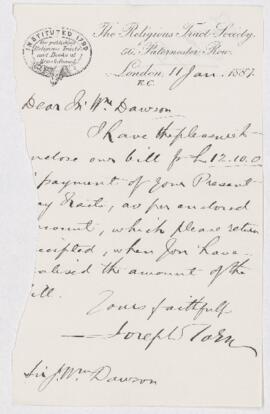 INSTITUTED 1799
for publishing
Religious Tracts
and Books at
The Religious Tract Society,
56, Paternoster Row,
London, 11 Jan. 1887.
E.C.
Dear Sir Wm Dawson
I have the pleasure to
enclose our bill for £12.10.0
payment of your Present
Day Tracts, as per enclosed
account, which please return
receipted, when you have
realised the amount of the
bill.
Yours faithfully
Joseph
Sir J. Wm Dawson